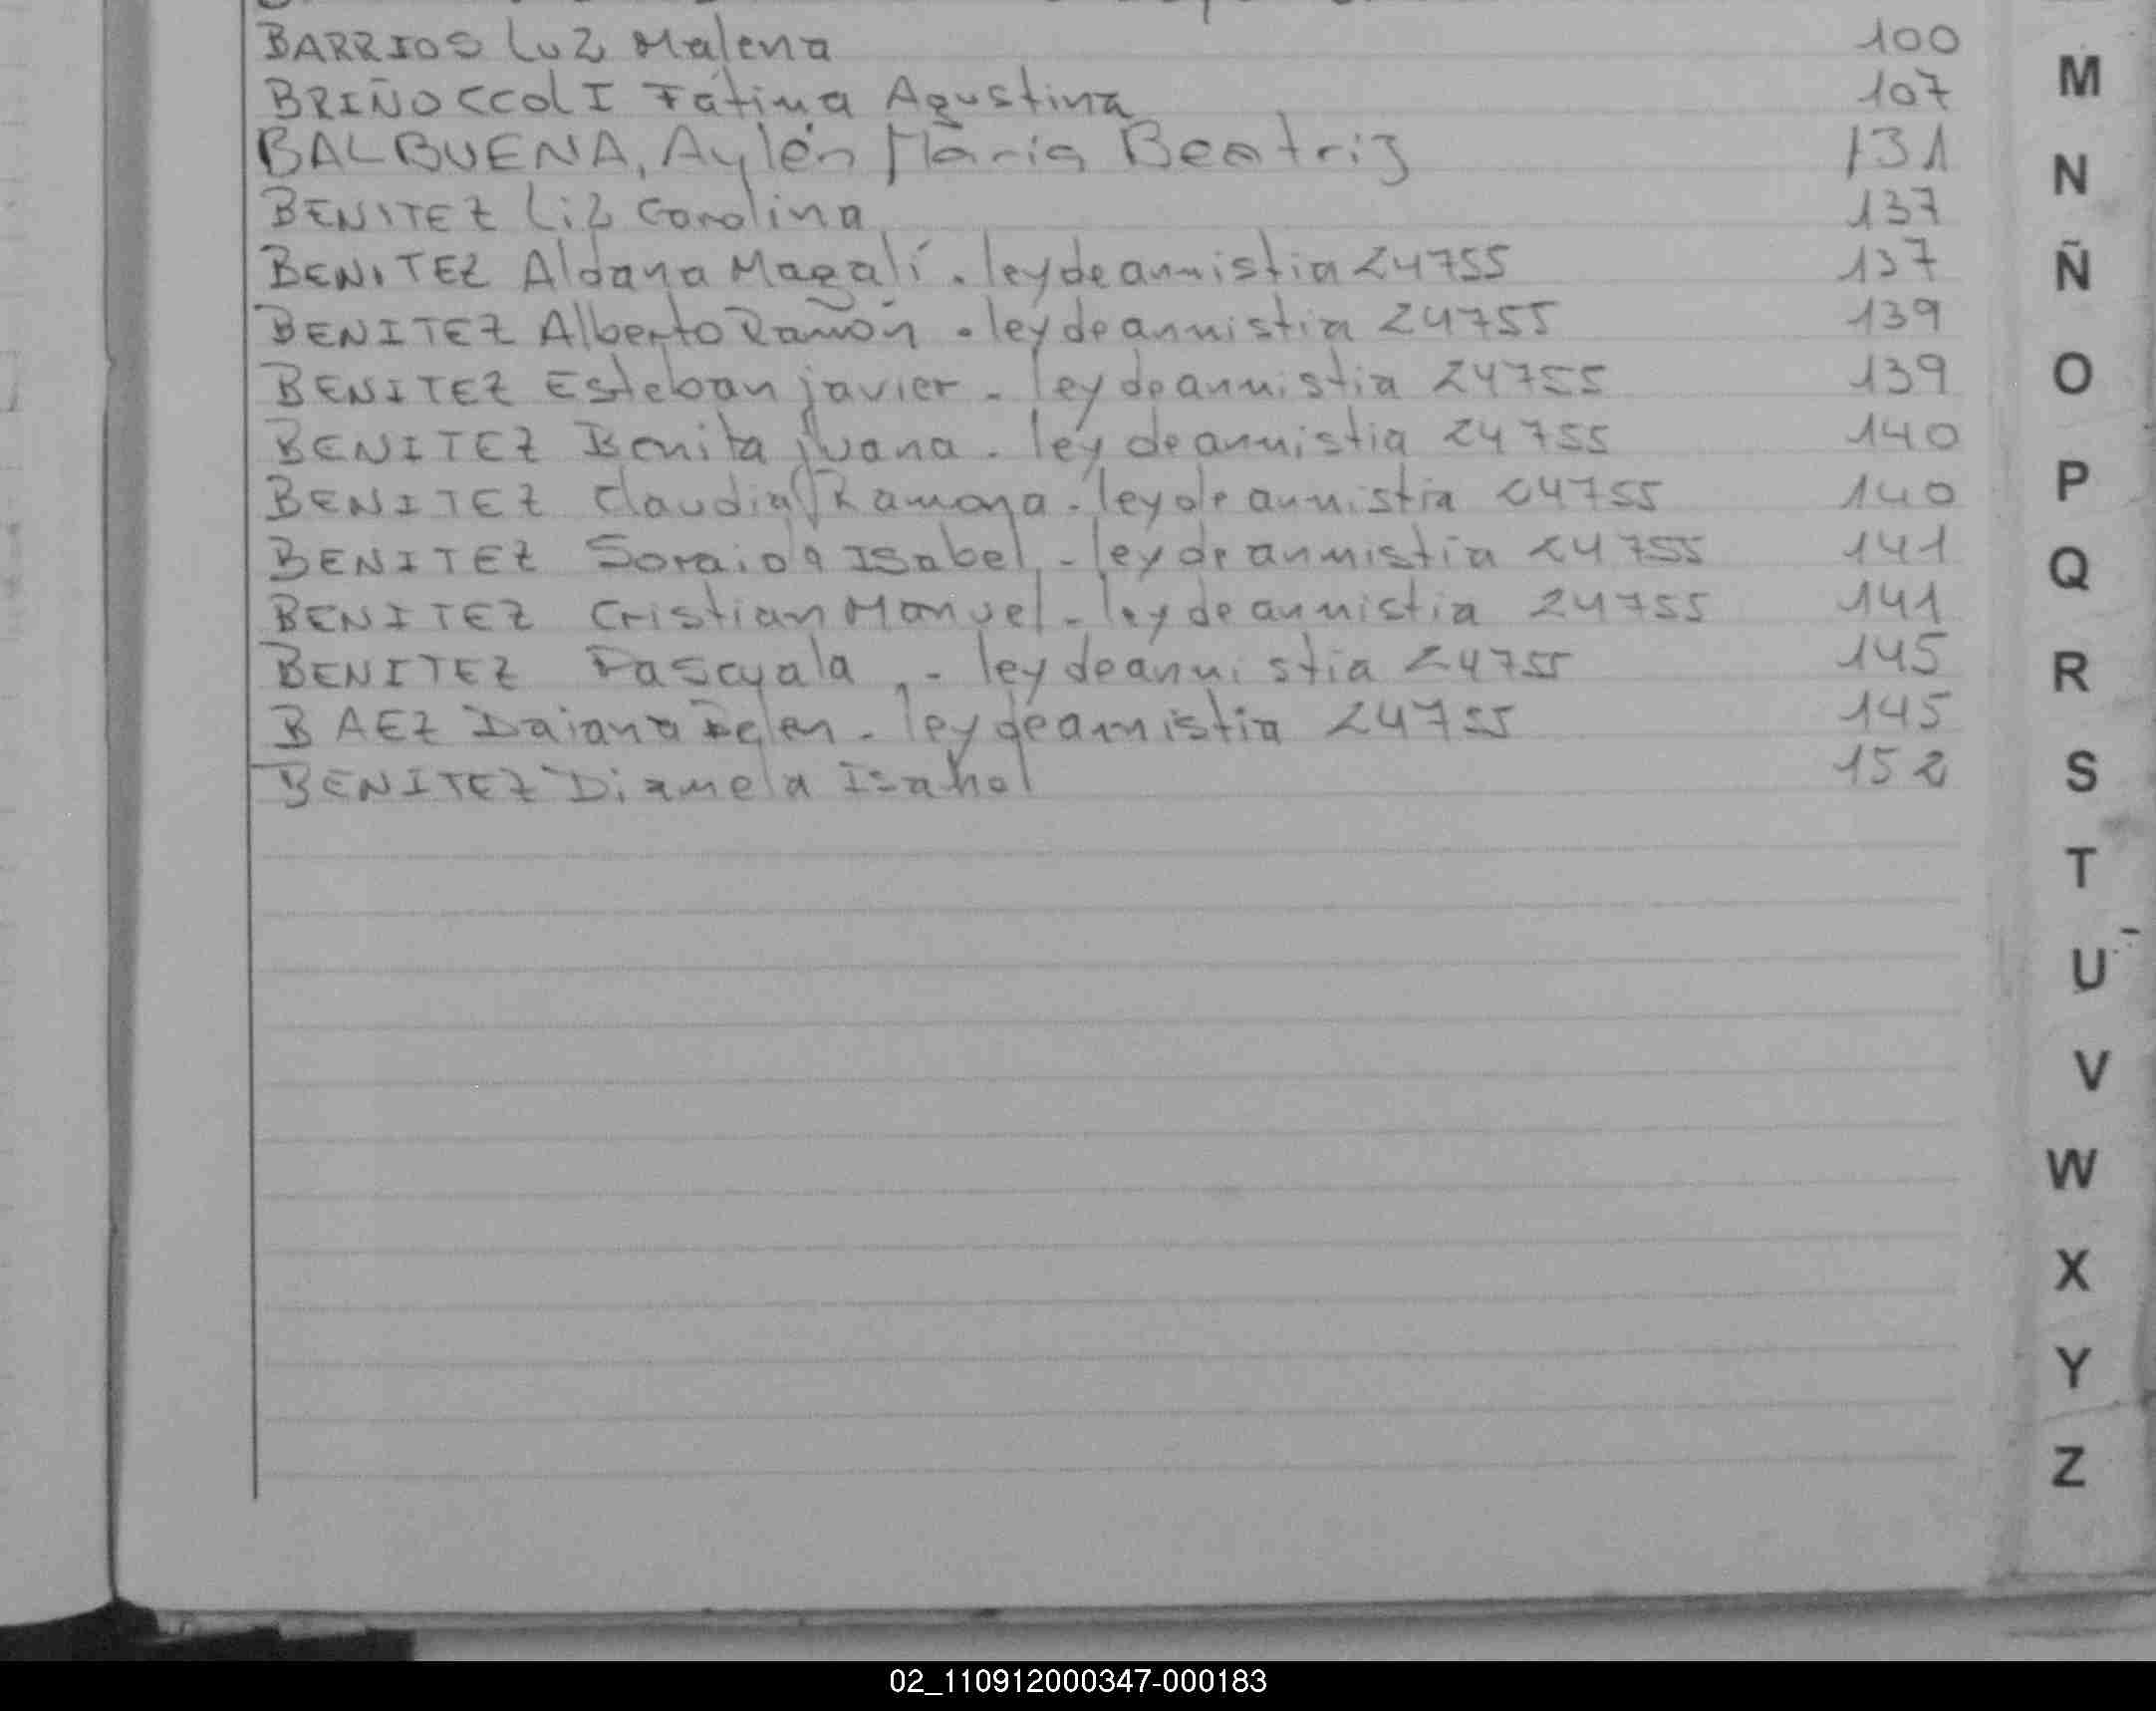 BARRIOS Luz Malena 100
BRIÑOCCOLI Fátima Agustina 107
BALBUENA, Aylén María Beatriz 131
BENITEZ Liz Carolina 137
BENITEZ Aldana Magalí . ley de amnistia 24755 137
BENITEZ Alberto Ramón . ley de amnistia 24755 139
BENITEZ Esteban javier - ley de amnistia 24755 139
BENITEZ Benita juana . ley de amnistia 24755 140
BENITEZ Claudia Ramona . ley de amnistia 24755 140
BENITEZ Soraida Isabel - ley de amnistia 24755 141
BENITEZ Cristian Manuel - ley de amnistia 24755 141
BENITEZ Pascuala , - ley de amnistia 24755 145
BAEZ Daiana Belen - ley de amnistia 24755 145
BENITEZ Diamela Isabel 152
M
N
Ñ
O
P
Q
R
S
T
U
V
W
X
Y
Z
02_110912000347-000183